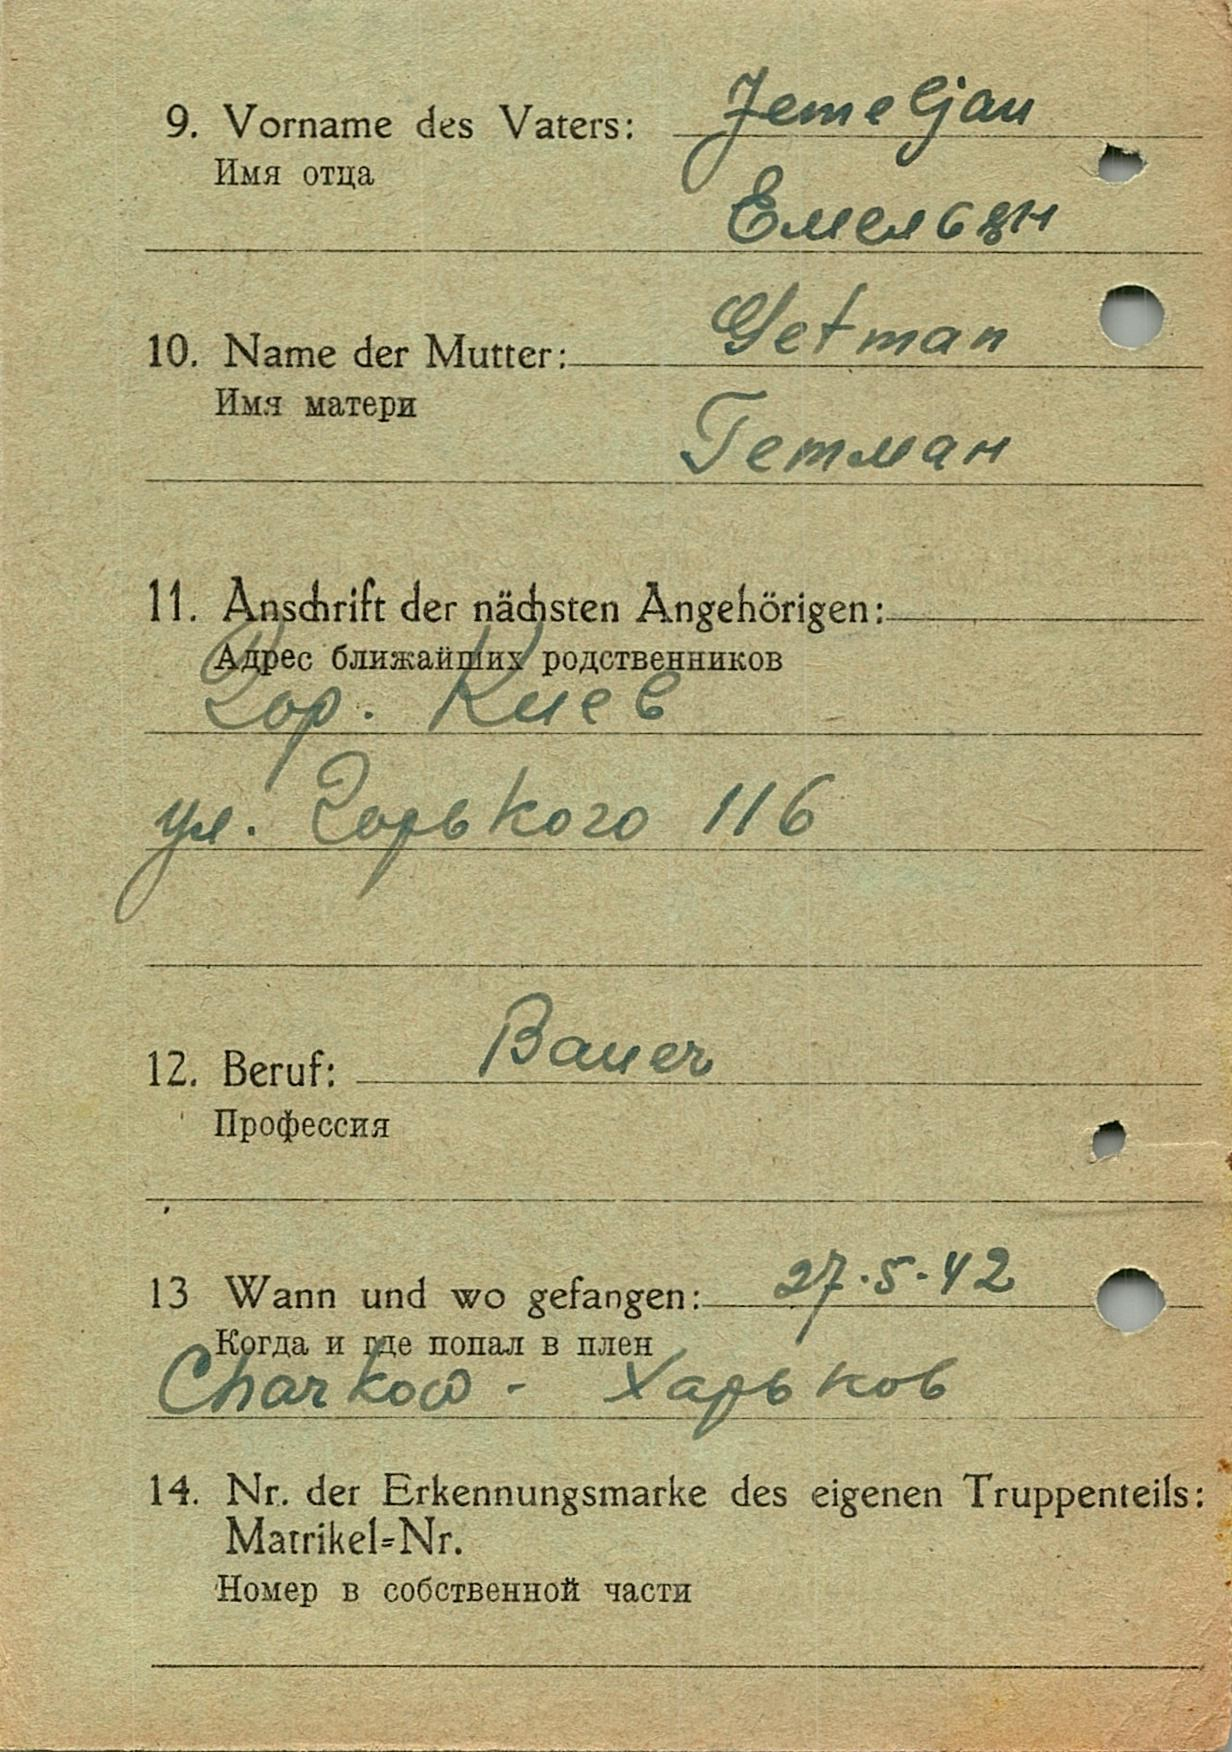 9. Vorname des Vaters: Jemeljan
Имя отца
Емельян
10. Name der Mutter: Getman
Имя матери
Гетман
11. Anschrift der nächsten Angehörigen:
Адрес ближайших родственников
Гор. Киев
ул. Горького 116
12. Beruf: Bauer
Профессия
13 Wann und wo gefangen: 27.5.42
Когда и где попал в плен
Charkow - Харьков
14. Nr. der Erkennungsmarke des eigenen Truppenteils:
Matrikel=Nr.
Номер в собственной части